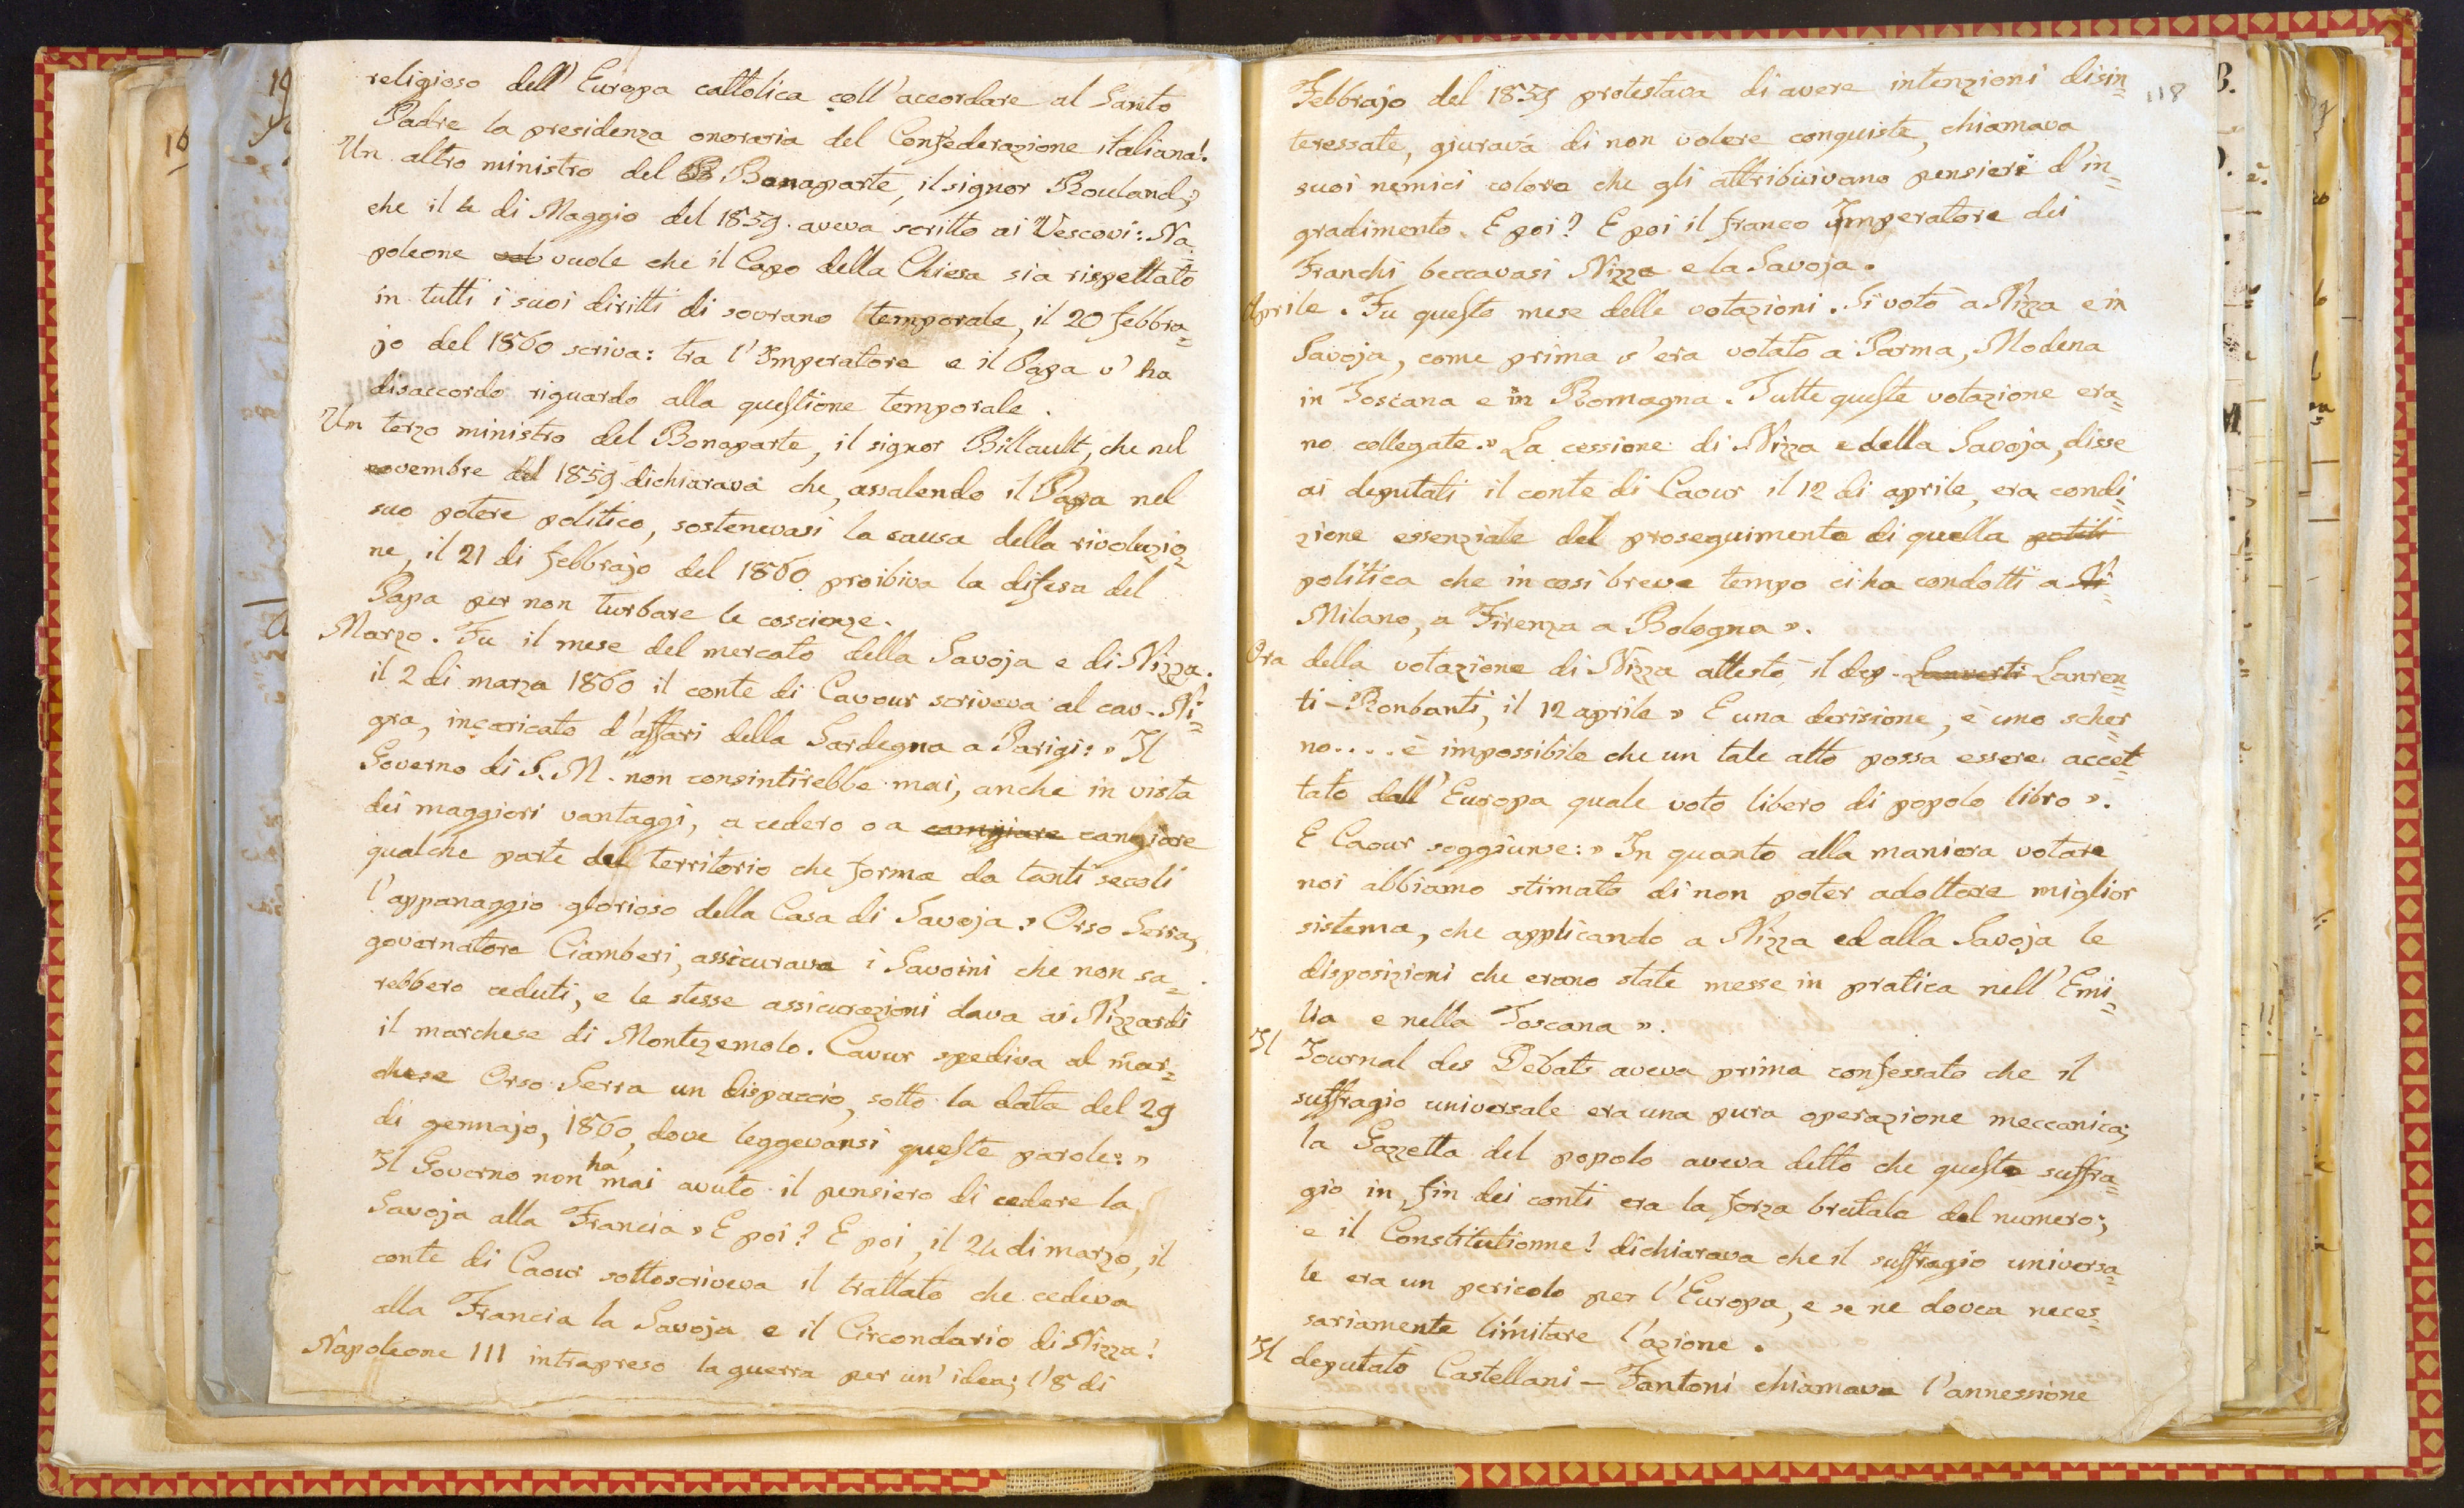 religioso dell'Europa cattolica coll'accordare al Santo
Padre la presidenza onoraria del Confederazione italiana!
Un altro ministro del Bonaparte, il signor Rouland,
che il 4 di Maggio del 1859. aveva scritto ai Vescovi: Na=
poleone vuole che il Capo della Chiesa sia rispettato
in tutti i suoi diritti di sovrano temporale, il 20 febbra=
jo del 1860 scriva: tra l'Imperatore e il Papa v'ha
disaccordo riguardo alla questione temporale.
Un terzo ministro del Bonaparte, il signor Billault, che nel
novembre del 1859. dichiarava che, assalendo il Papa nel
suo potere politico, sostenevasi la causa della rivoluzio=
ne, il 21 di febbrajo del 1860 proibiva la difesa del
Papa per non turbare le coscienze.
Marzo. Fu il mese del mercato della Savoja e di Nizza.
il 2 di marza 1860 il conte di Cavour scriveva al cav. Ni=
gra, incaricato d'affari della Sardegna a Parigi: » Il
Governo di S. M. non consintirebbe mai, anche in vista
dei maggiori vantaggi, a cedero o a camgiare cangiare
qualche parte del territorio che forma da tanti secoli
l'appanaggio glorioso della Casa di Savoja.» Orso Serra,
governatore Ciamberi, assicurava i Savoini che non sa=
rebbero ceduti, e le stesse assicurazioni dava ai Nizzardi
il marchese di Montezemolo. Cavur spediva al mar=
chese Orso Serra un dispaccio, sotto la data del 29
di gennajo, 1860, dove leggevansi queste parole: »
Il Governo non ha mai avuto il pensiero di cedere la
Savoja alla Francia » E poi? E poi, il 24 di marzo, il
conte di Caour sottoscriveva il trattato che cediva
alla Francia la Savoja e il Circondario di Nizza!
Napoleone III intrapreso la guerra per un'idea; l'8 di
118
Febbrajo del 1859 protestava di avere intenzioni disin=
teressate, giurava di non volere conquiste, chiamava
suoi nemici coloro che gli attribuivano pensieri d'in=
gradimento. E poi? E poi il franco Imperatore dei
Franchi beccavasi Nizza e la Savoja.
Aprile. Fu questo mese delle votazioni. Si votò a Nizza e in
Savoja, come prima s'era votato a Parma, Modena
in Toscana e in Romagna. Tutte queste votazione era=
no collegate.» La cessione di Nizza e della Savoja, disse
ai deputati il conte di Caour il 12 di aprile, era condi=
zione essenziale del proseguimento di quella politi
politica che in così breve tempo ci ha condotti a Ni=
Milano, a Firenza a Bologna ».
Ora della votazione di Nizza attestò il dep. Lauresti Lauren=
ti-Ronbanti, il 12 aprile » E una derisione, è uno scher=
no.... è impossibile che un tale atto possa essere accet=
tato dall'Europa quale voto libero di popolo libro ».
E Caour soggiunse: » In quanto alla maniera votare
noi abbiamo stimato di non poter adottare miglior
sistema, che applicando a Nizza ed alla Savoja le
disposizioni che erano state messe in pratica nell'Emi=
lia e nella Toscana ».
Il Journal des Débats aveva prima confessato che il
suffragio universale era una pura operazione meccanica;
la Gazzetta del popolo aveva detto che questo suffra=
gio in fin dei conti era la forza brutale del numero;
e il Constitutionne! dichiarava che il suffragio universa=
le era un pericolo per l'Europa, e se ne dovea neces=
sariamente limitare l'azione.
Il deputato Castellani - Fantoni chiamava l'annessione